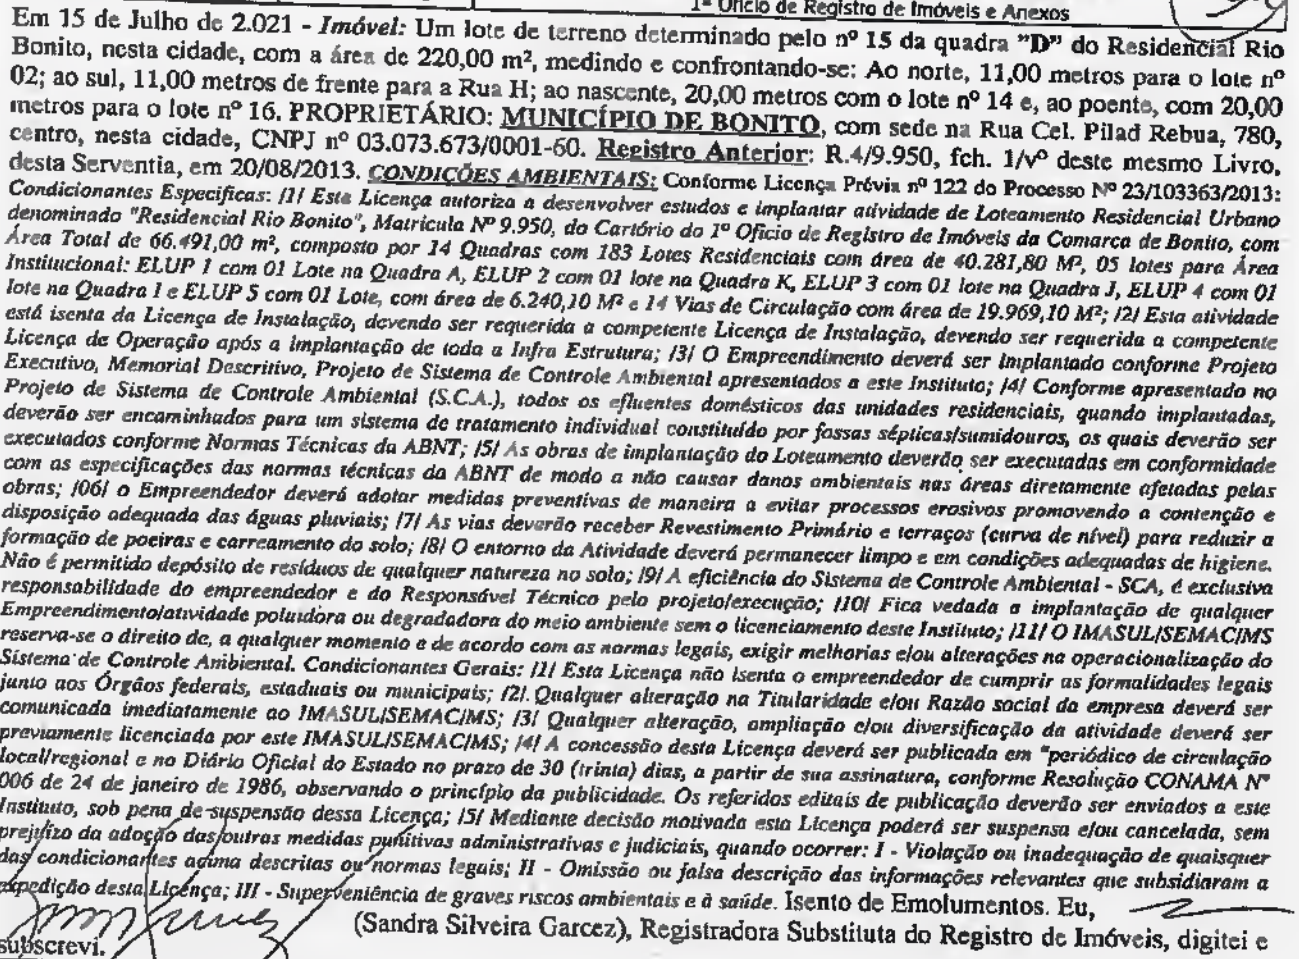 1º Ofício de Registro de Imóveis e Anexos
Em 15 de Julho de 2.021 - Imóvel: Um lote de terreno determinado pelo nº 15 da quadra "D" do Residencial Rio
Bonito, nesta cidade, com a área de 220,00 m², medindo e confrontando-se: Ao norte, 11,00 metros para o lote nº
02; ao sul, 11,00 metros de frente para a Rua H; ao nascente, 20,00 metros com o lote nº 14 e, ao poente, com 20,00
metros para o lote nº 16. PROPRIETÁRIO: MUNICÍPIO DE BONITO, com sede na Rua Cel. Pilad Rebua, 780,
centro, nesta cidade, CNPJ nº 03.073.673/0001-60. Registro Anterior: R.4/9.950, fch. 1/vº deste mesmo Livro,
desta Serventia, em 20/08/2013. CONDIÇÕES AMBIENTAIS: Conforme Licença Prévia nº 122 do Processo Nº 23/103363/2013:
Condicionantes Específicas: /1/ Esta Licença autoriza a desenvolver estudos e implantar atividade de Loteamento Residencial Urbano
denominado "Residencial Rio Bonito", Matrícula Nº 9.950, do Cartório do 1º Ofício de Registro de Imóveis da Comarca de Bonito, com
Área Total de 66.491,00 m², composto por 14 Quadras com 183 Lotes Residenciais com área de 40.281,80 M², 05 lotes para Área
Institucional: ELUP 1 com 01 Lote na Quadra A, ELUP 2 com 01 lote na Quadra K, ELUP 3 com 01 lote na Quadra J, ELUP 4 com 01
lote na Quadra I e ELUP 5 com 01 Lote, com área de 6.240,10 M² e 14 Vias de Circulação com área de 19.969,10 M²; /2/ Esta atividade
está isenta da Licença de Instalação, devendo ser requerida a competente Licença de Instalação, devendo ser requerida a competente
Licença de Operação após a implantação de toda a Infra Estrutura; /3/ O Empreendimento deverá ser implantado conforme Projeto
Executivo, Memorial Descritivo, Projeto de Sistema de Controle Ambiental apresentados a este Instituto; /4/ Conforme apresentado no
Projeto de Sistema de Controle Ambiental (S.C.A.), todos os efluentes domésticos das unidades residenciais, quando implantadas,
deverão ser encaminhados para um sistema de tratamento individual constituído por fossas sépticas/sumidouros, os quais deverão ser
executados conforme Normas Técnicas da ABNT; /5/ As obras de implantação do Loteamento deverão ser executadas em conformidade
com as especificações das normas técnicas da ABNT de modo a não causar danos ambientais nas áreas diretamente afetadas pelas
obras; /06/ o Empreendedor deverá adotar medidas preventivas de maneira a evitar processos erosivos promovendo a contenção e
disposição adequada das águas pluviais; /7/ As vias deverão receber Revestimento Primário e terraços (curva de nível) para reduzir a
formação de poeiras e carreamento do solo; /8/ O entorno da Atividade deverá permanecer limpo e em condições adequadas de higiene.
Não é permitido depósito de resíduos de qualquer natureza no solo; /9/ A eficiência do Sistema de Controle Ambiental - SCA, é exclusiva
responsabilidade do empreendedor e do Responsável Técnico pelo projeto/execução; /10/ Fica vedada a implantação de qualquer
Empreendimento/atividade poluidora ou degradadora do meio ambiente sem o licenciamento deste Instituto; /11/ O IMASUL/SEMAC/MS
reserva-se o direito de, a qualquer momento e de acordo com as normas legais, exigir melhorias e/ou alterações na operacionalização do
Sistema de Controle Ambiental. Condicionantes Gerais: /1/ Esta Licença não isenta o empreendedor de cumprir as formalidades legais
junto aos Órgãos federais, estaduais ou municipais; /2/. Qualquer alteração na Titularidade e/ou Razão social da empresa deverá ser
comunicada imediatamente ao IMASUL/SEMAC/MS; /3/ Qualquer alteração, ampliação e/ou diversificação da atividade deverá ser
previamente licenciada por este IMASUL/SEMAC/MS; /4/ A concessão desta Licença deverá ser publicada em "periódico de circulação
local/regional e no Diário Oficial do Estado no prazo de 30 (trinta) dias, a partir de sua assinatura, conforme Resolução CONAMA Nº
006 de 24 de janeiro de 1986, observando o princípio da publicidade. Os referidos editais de publicação deverão ser enviados a este
Instituto, sob pena de suspensão dessa Licença; /5/ Mediante decisão motivada esta Licença poderá ser suspensa e/ou cancelada, sem
prejuízo da adoção das outras medidas punitivas administrativas e judiciais, quando ocorrer: I - Violação ou inadequação de quaisquer
das condicionantes acima descritas ou normas legais; II - Omissão ou falsa descrição das informações relevantes que subsidiaram a
expedição desta Licença; III - Superveniência de graves riscos ambientais e à saúde. Isento de Emolumentos. Eu,
(Sandra Silveira Garcez), Registradora Substituta do Registro de Imóveis, digitei e
subscrevi.